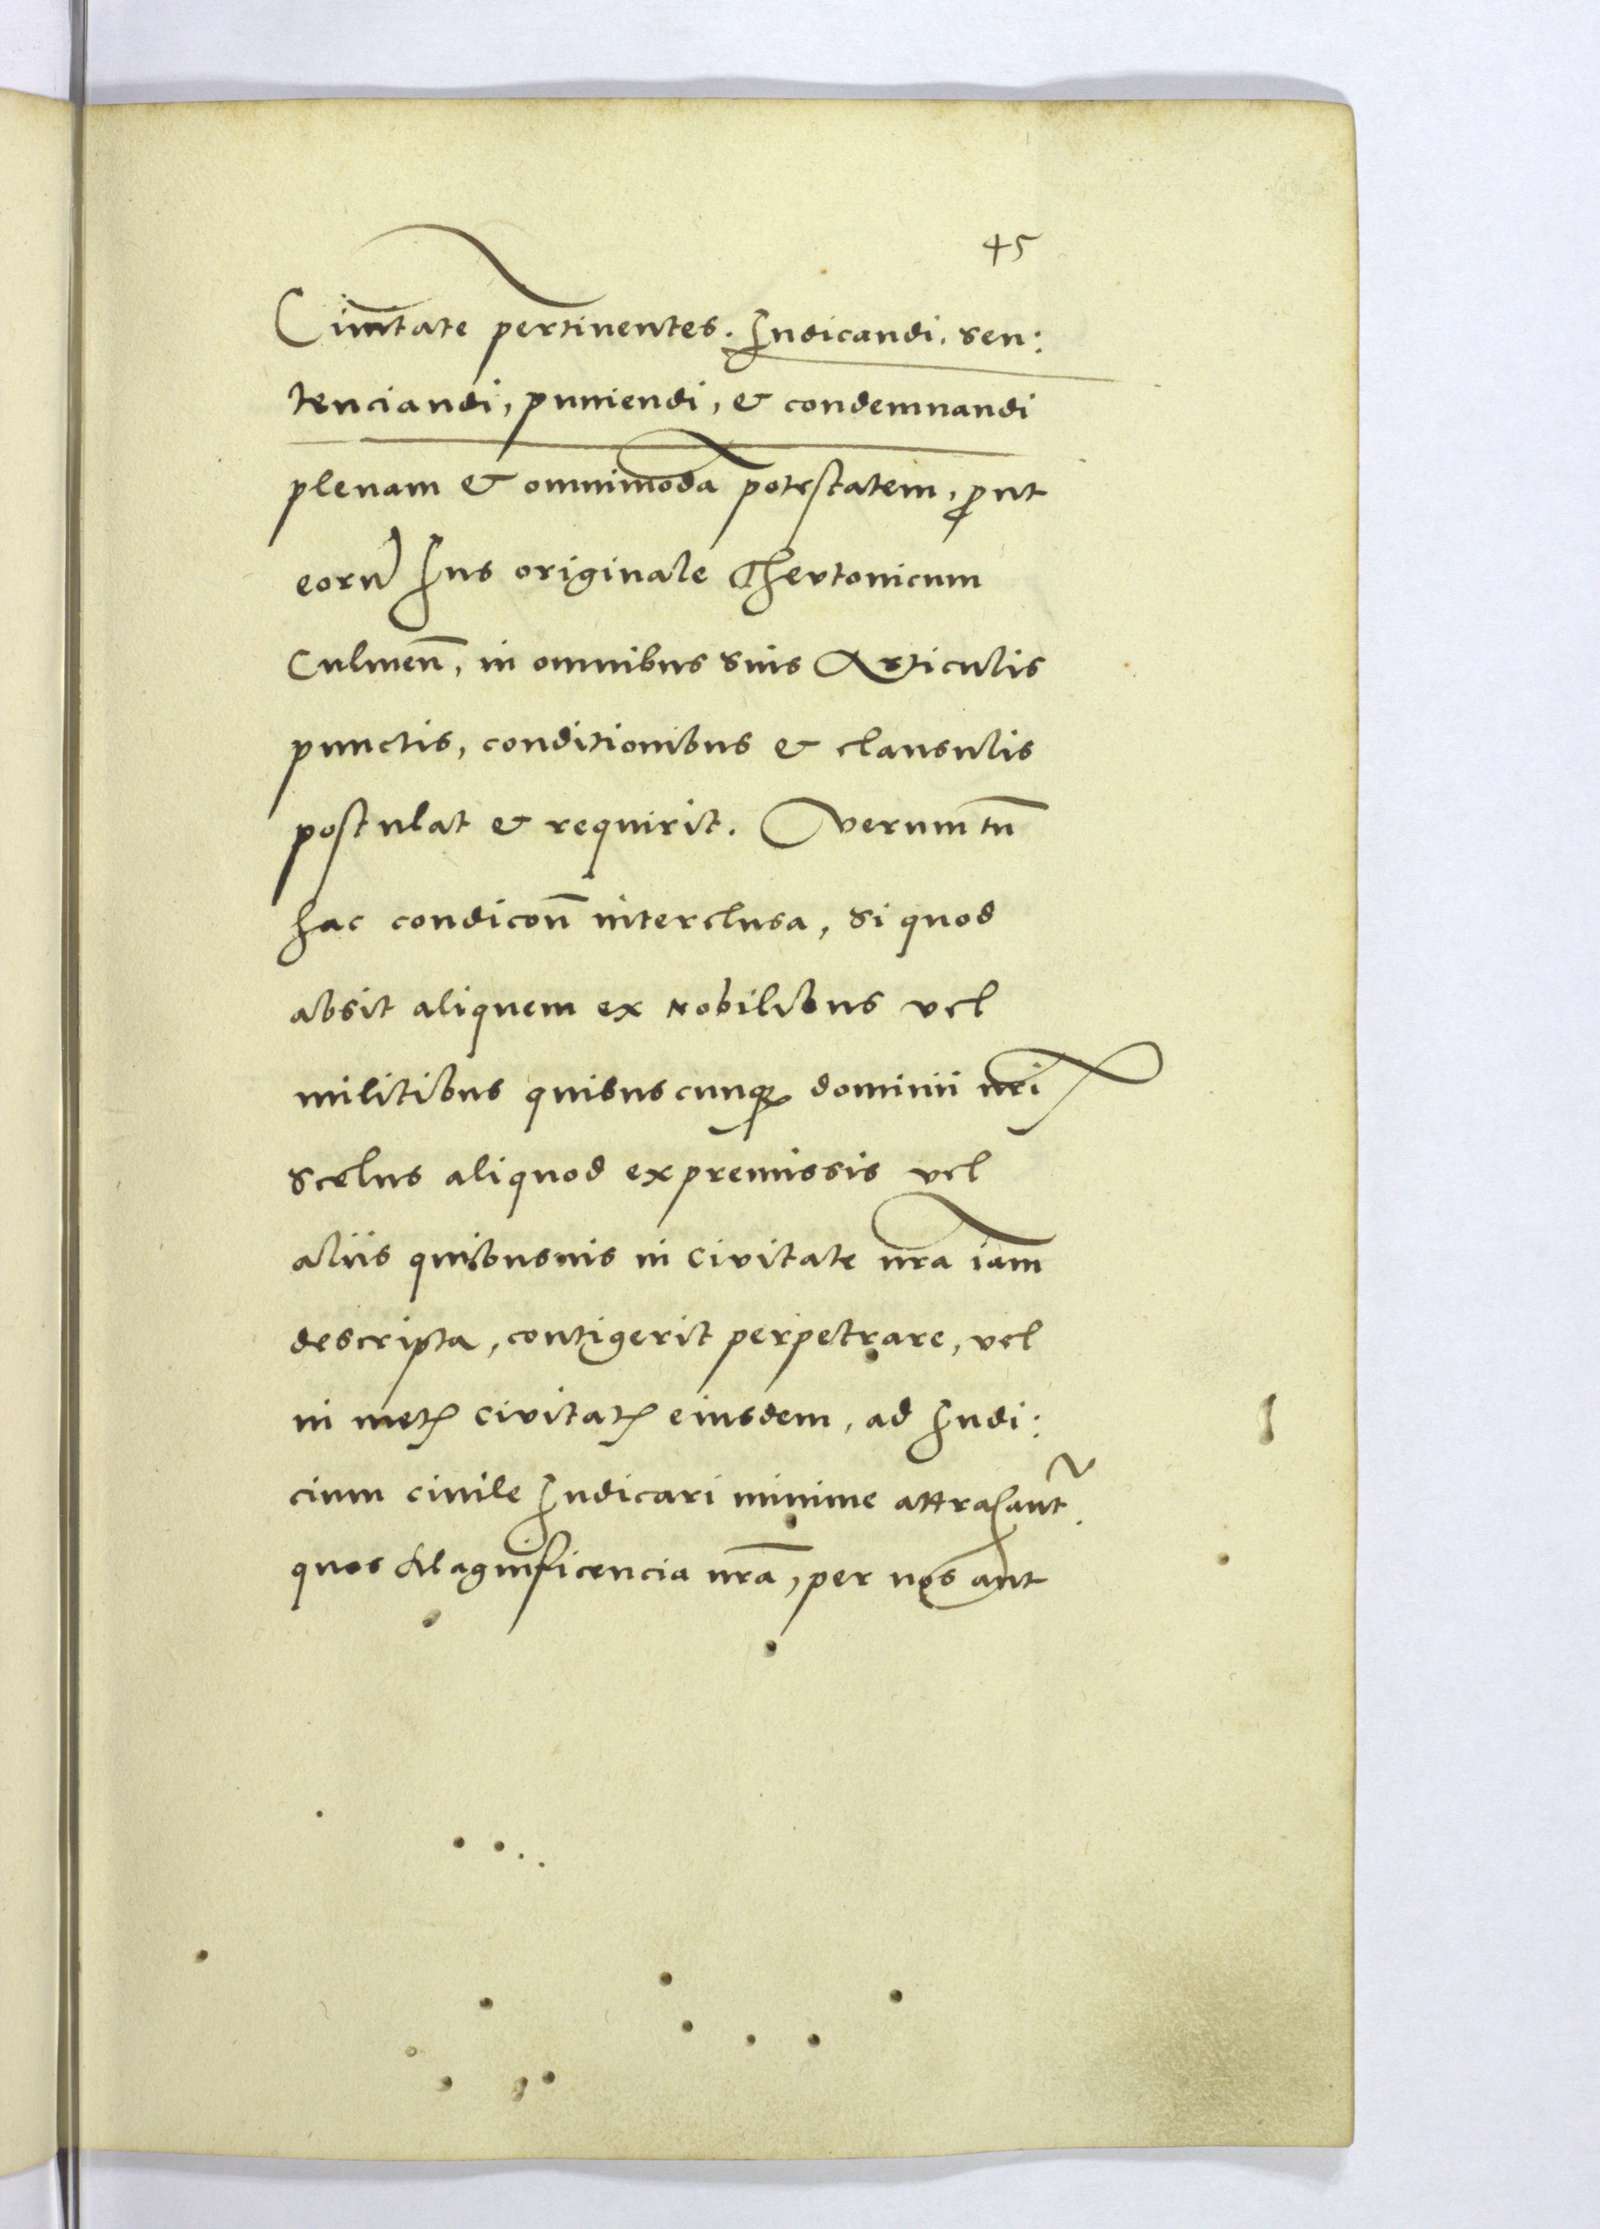 45
Ciuitate pertinentes. Iudicandi, sen:
tenciandi, puniendi, & condemnandi
plenam & omnimodā potestatem, ꝓut
eorū Ius originale Thevtonicum
Culmeñ, in omnibus suis Articulis
punctis, conditionibus & clausulis
postulat & requirit. Verum tñ
hac condicoñ interclusa, si quod
absit aliquem ex nobilibus vel
militibus quibuscunqꝫ dominii nri
scelus aliquod ex premissis vel
aliis quibusuis in civitate nra iam
descripta, contigerit perpetrare, vel
in metꝭ civitatꝭ eiusdem, ad Iudi:
cium ciuile Iudicari minime attrahant᷑.
quos Magnificencia nrā, per nos aut